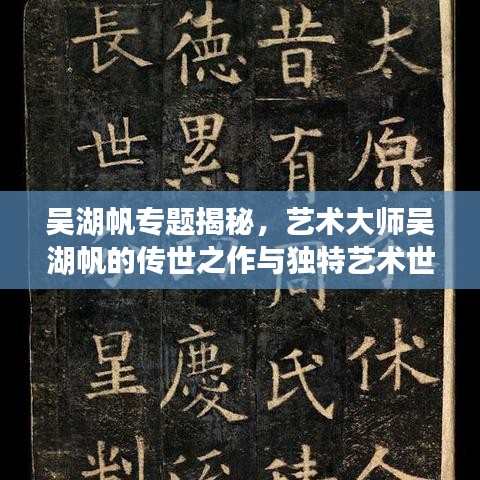 太原休
昔有周氏
德累慶
長世星
吴湖帆专题揭秘，艺术大师吴
湖帆的传世之作与独特艺术世